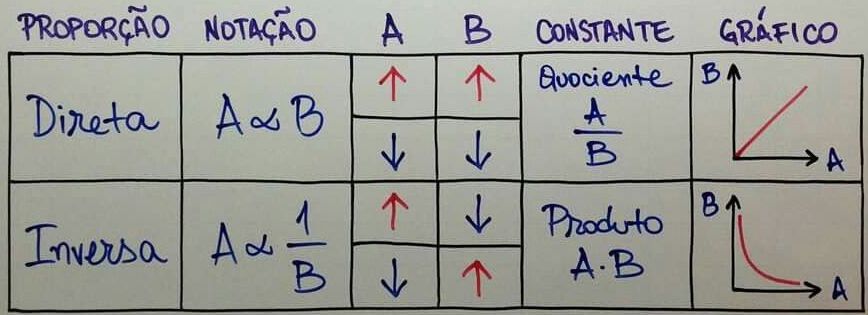 PROPORÇÃO NOTAÇÃO A B CONSTANTE GRÁFICO
Direta A ∝ B ↑ ↑ Quociente B
↓ ↓ A/B A
Inversa A ∝ 1/B ↑ ↓ Produto B
↓ ↑ A·B A